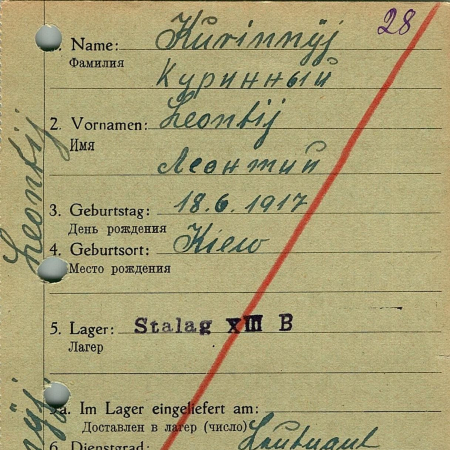 28
1. Name: Kurinnyj
Фамилия
Куринный
2. Vornamen: Leontij
Имя
Леонтий
3. Geburtstag: 18.6.1917
День рождения
4. Geburtsort: Kiew
Место рождения
5. Lager: Stalag XIII B
Лагер
5a. Im Lager eingeliefert am:
Доставлен в лагер (число)
6. Dienstgrad: Leutnant
Leontij